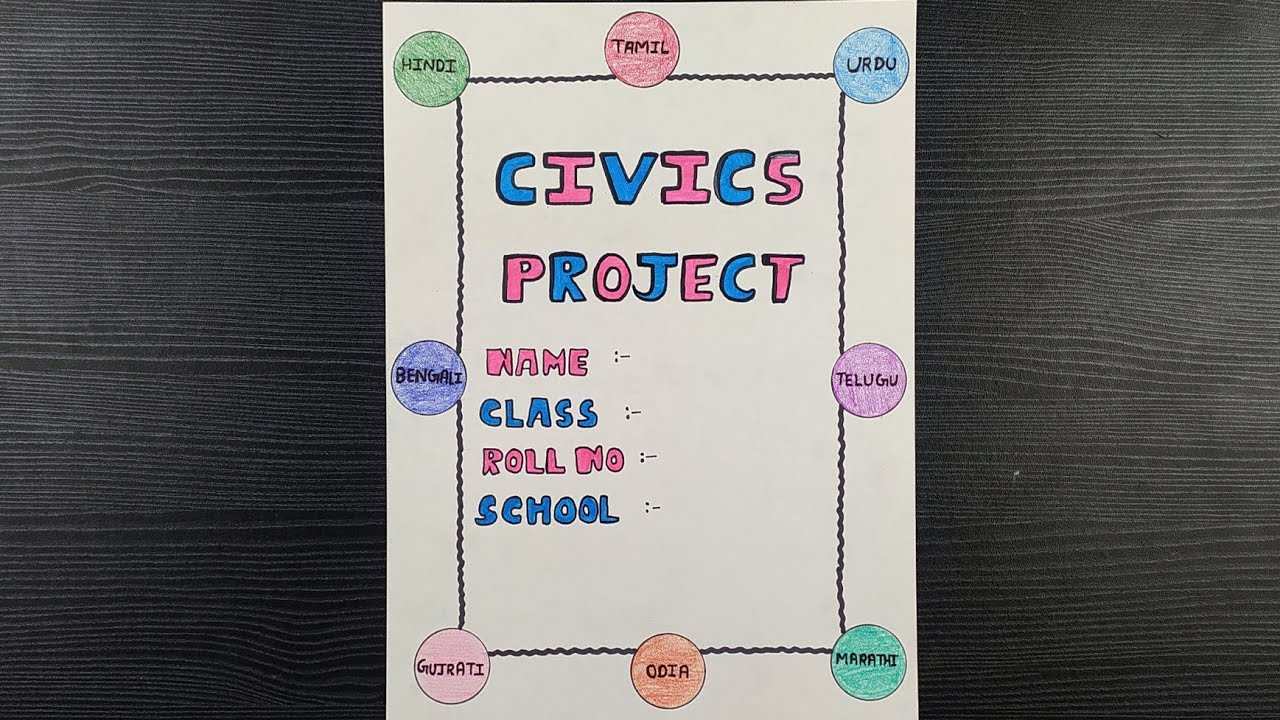 TAMIL
HINDI
URDU
CIVICS
PROJECT
BENGALI
TELUGU
NAME :-
CLASS :-
ROLL NO :-
SCHOOL :-
GUJRATI
ODIA
MARATHI